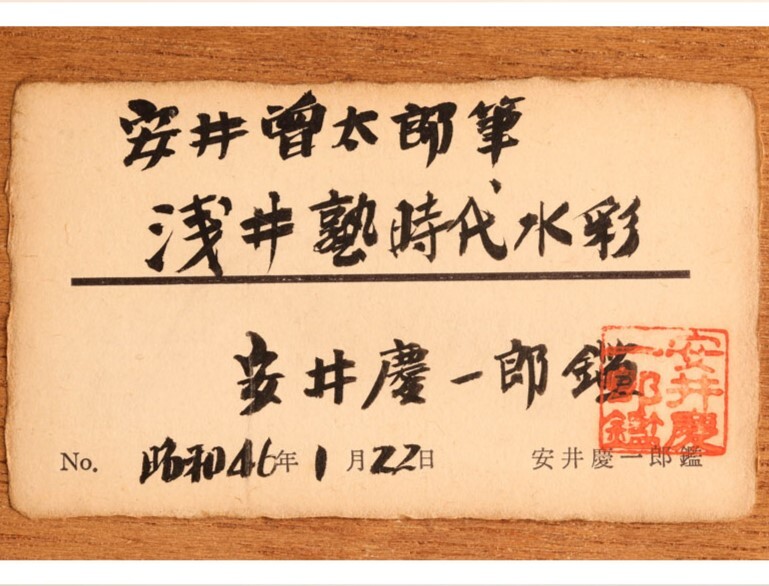 安井曾太郎筆
浅井塾時代水彩
安井慶一郎鑑
安井慶一郎鑑
No. 昭和46年1月22日
安井慶一郎鑑